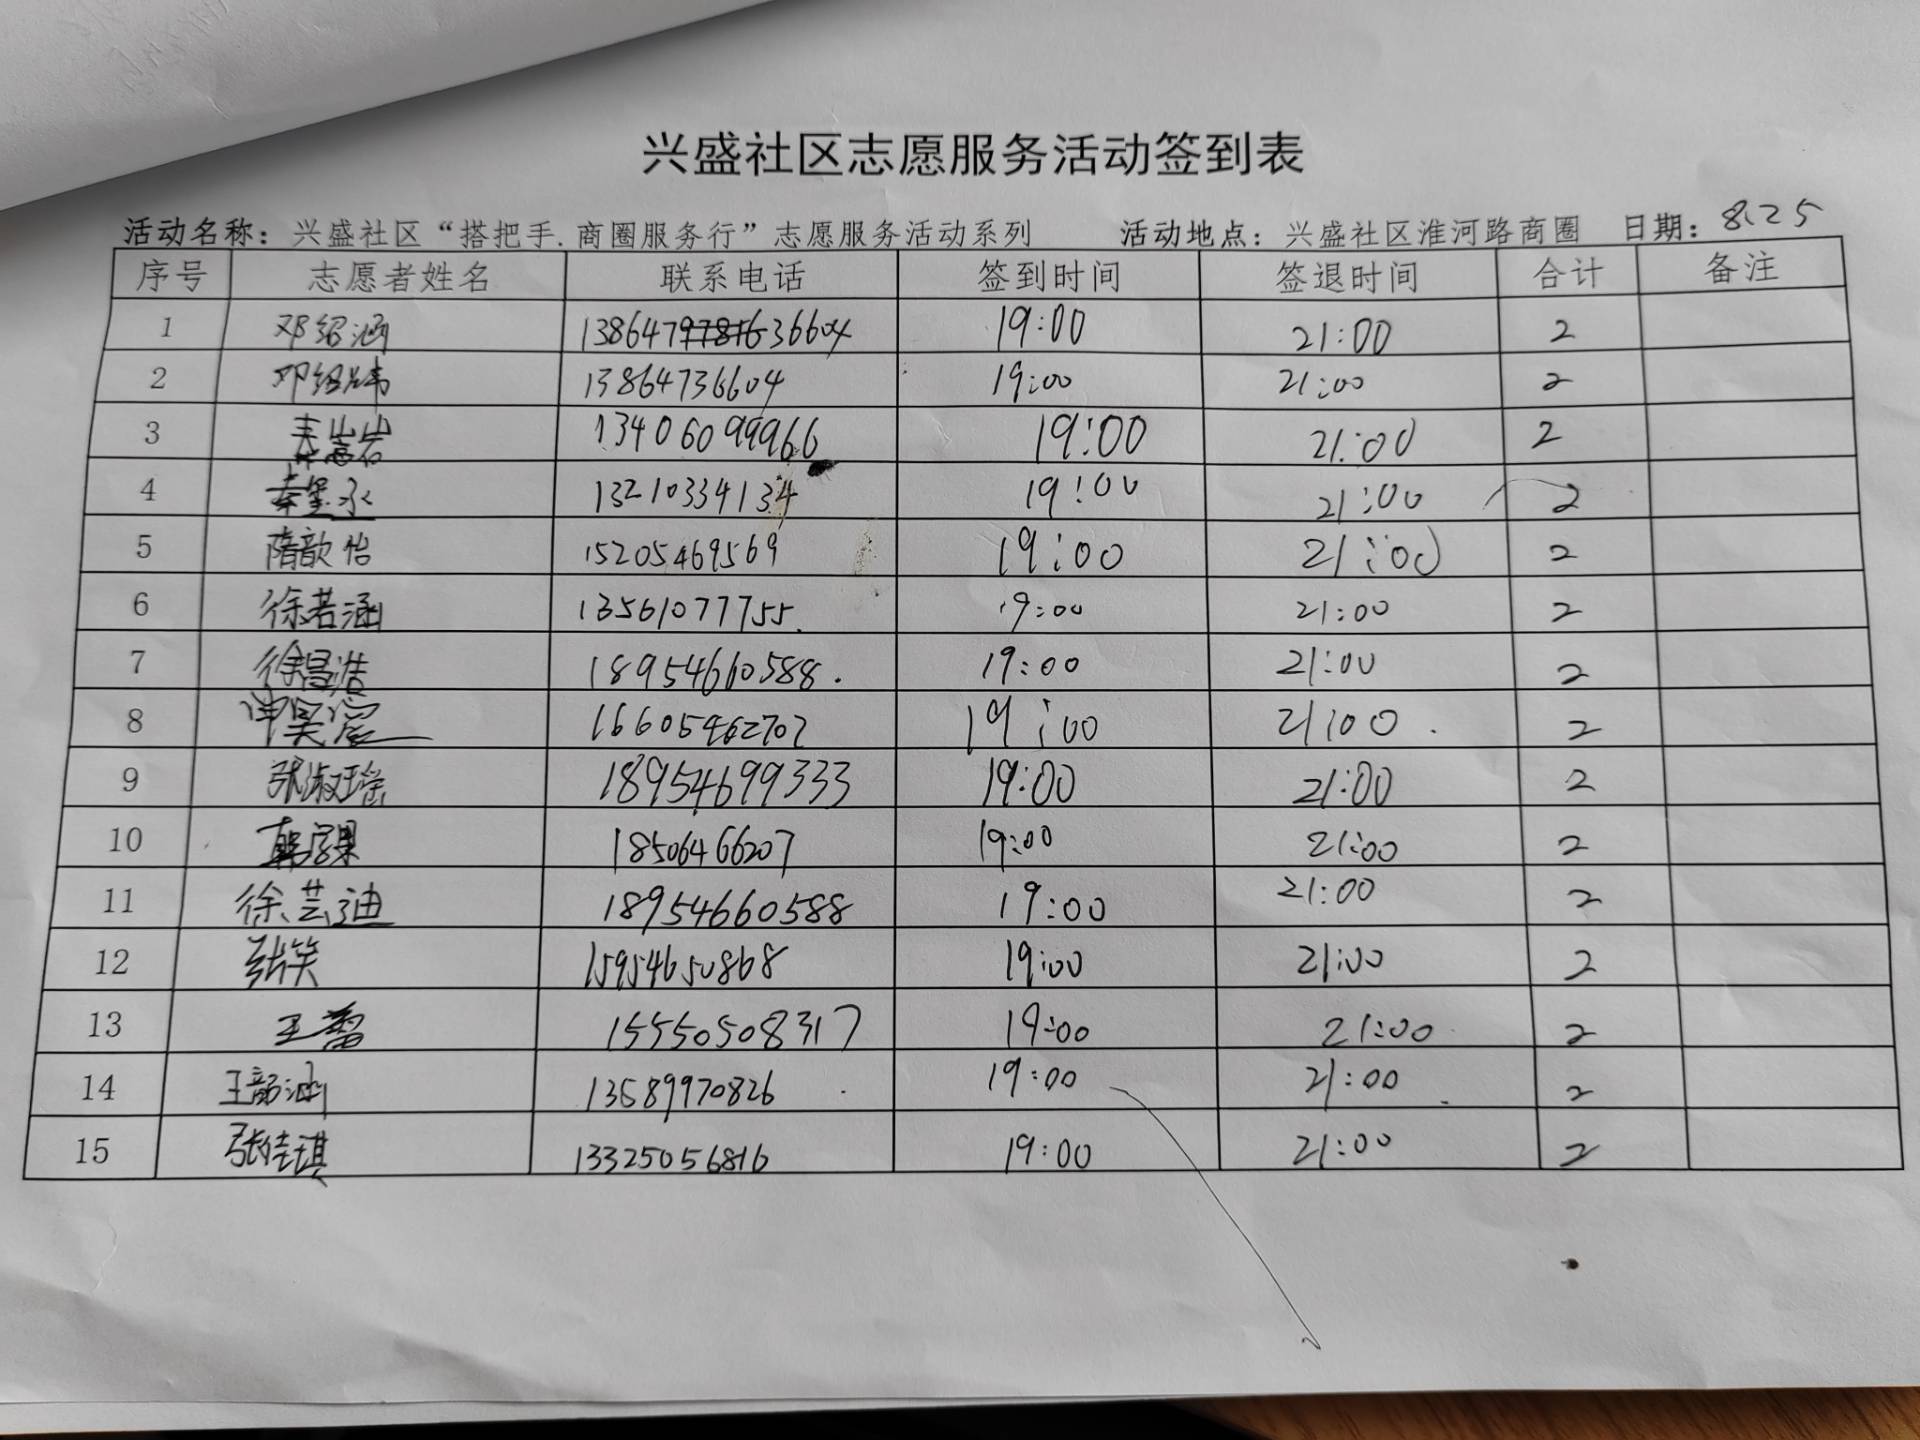 兴盛社区志愿服务活动签到表
活动名称：兴盛社区“搭把手.商圈服务行”志愿服务活动系列 活动地点：兴盛社区淮河路商圈 日期：8.25
序号 志愿者姓名 联系电话 签到时间 签退时间 合计 备注
1 邓绍涵 13864736604 19:00 21:00 2
2 邓绍炜 13864736604 19:00 21:00 2
3 13406099966 19:00 21:00 2
4 13210334134 19:00 21:00 2
5 隋歆怡 15205469569 19:00 21:00 2
6 徐若涵 13561077755. 19:00 21:00 2
7 徐昌浩 18954660588. 19:00 21:00 2
8 16605462702 19:00 21:00. 2
9 张淑瑶 18954699333 19:00 21:00 2
10 18506466207 19:00 21:00 2
11 徐芸迪 18954660588 19:00 21:00 2
12 张笑 15954650868 19:00 21:00 2
13 王 15550508317 19:00 21:00 2
14 王韶涵 13589970826 19:00 21:00 2
15 张佳琪 13325056816 19:00 21:00 2